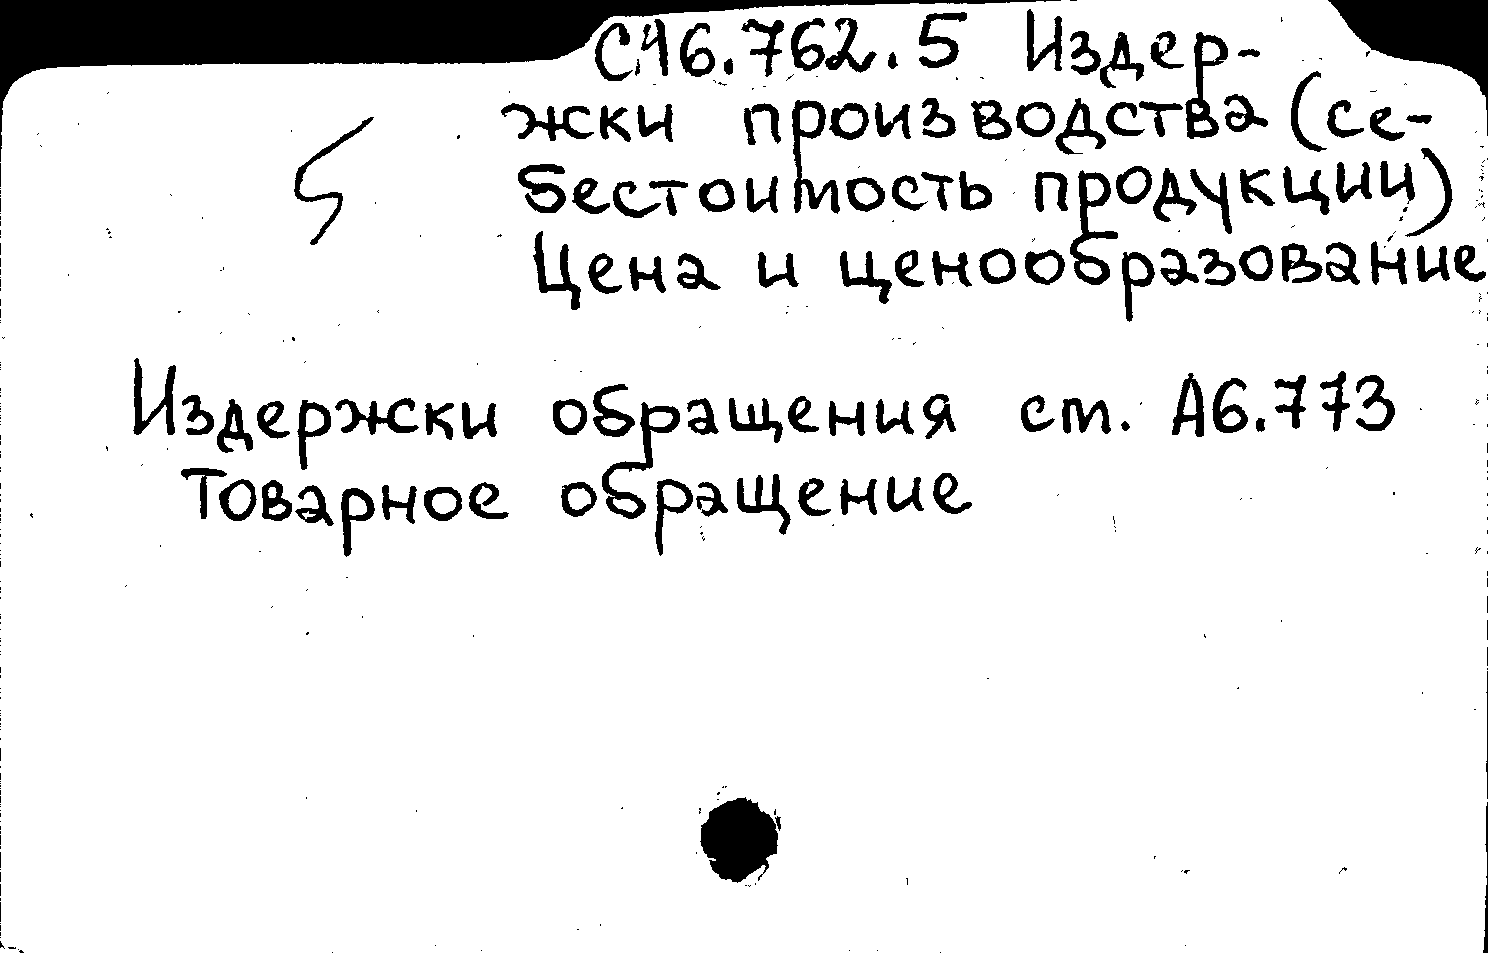 С16.762.5 Издер-
жки производства (се-
бестоимость продукции)
Цена и ценообразование
Издержки обращения ст. А6.773
Товарное обращение